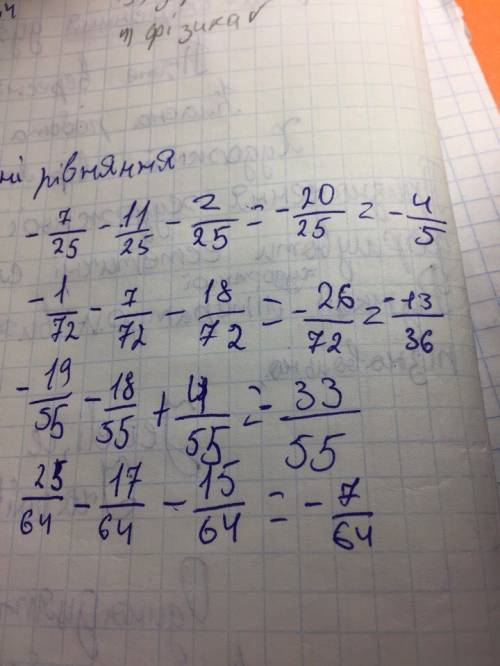 1) фізика
ні рівняння
-7/25 - 11/25 - 2/25 = -20/25 = -4/5
-1/72 - 7/72 - 18/72 = -26/72 = -13/36
-19/55 - 18/55 + 4/55 = -33/55
25/64 - 17/64 - 15/64 = -7/64